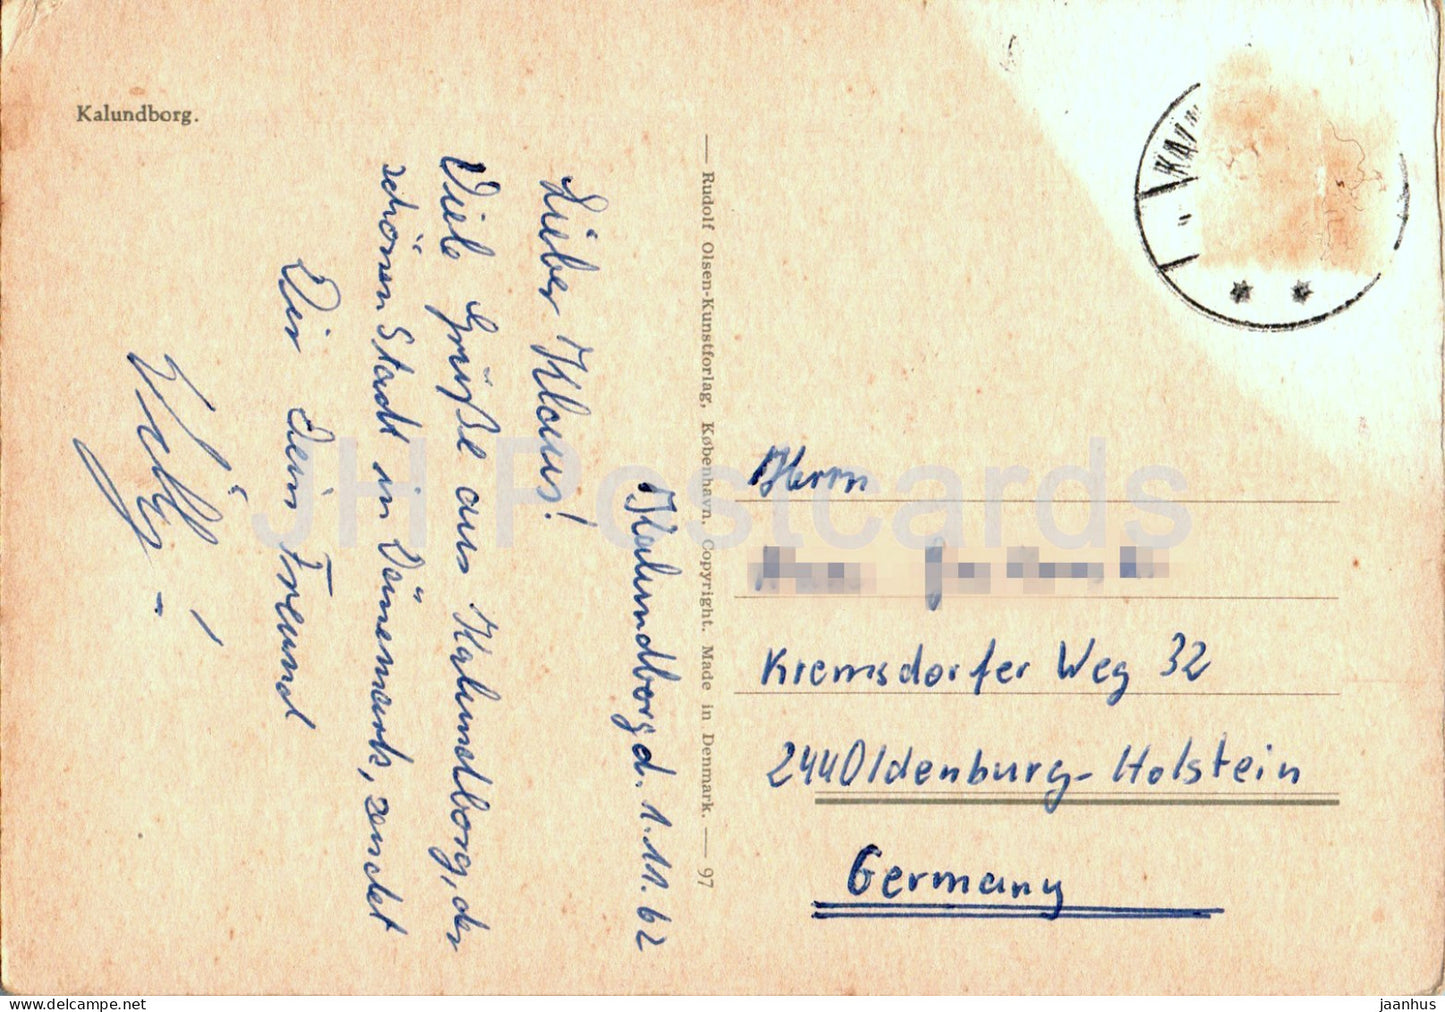 Kalundborg.
Kalundborg d. 1.11.62
Lieber Klaus!
Viele Grüße aus Kalundborg, der
schönen Stadt in Dänemark, sendet
Dir Dein Freund
— Rudolf Olsen-Kunstforlag, København. Copyright. Made in Denmark. — 97
Herrn
Kremsdorfer Weg 32
244 Oldenburg-Holstein
Germany
JH Postcards
delcampe.net
jaanhus